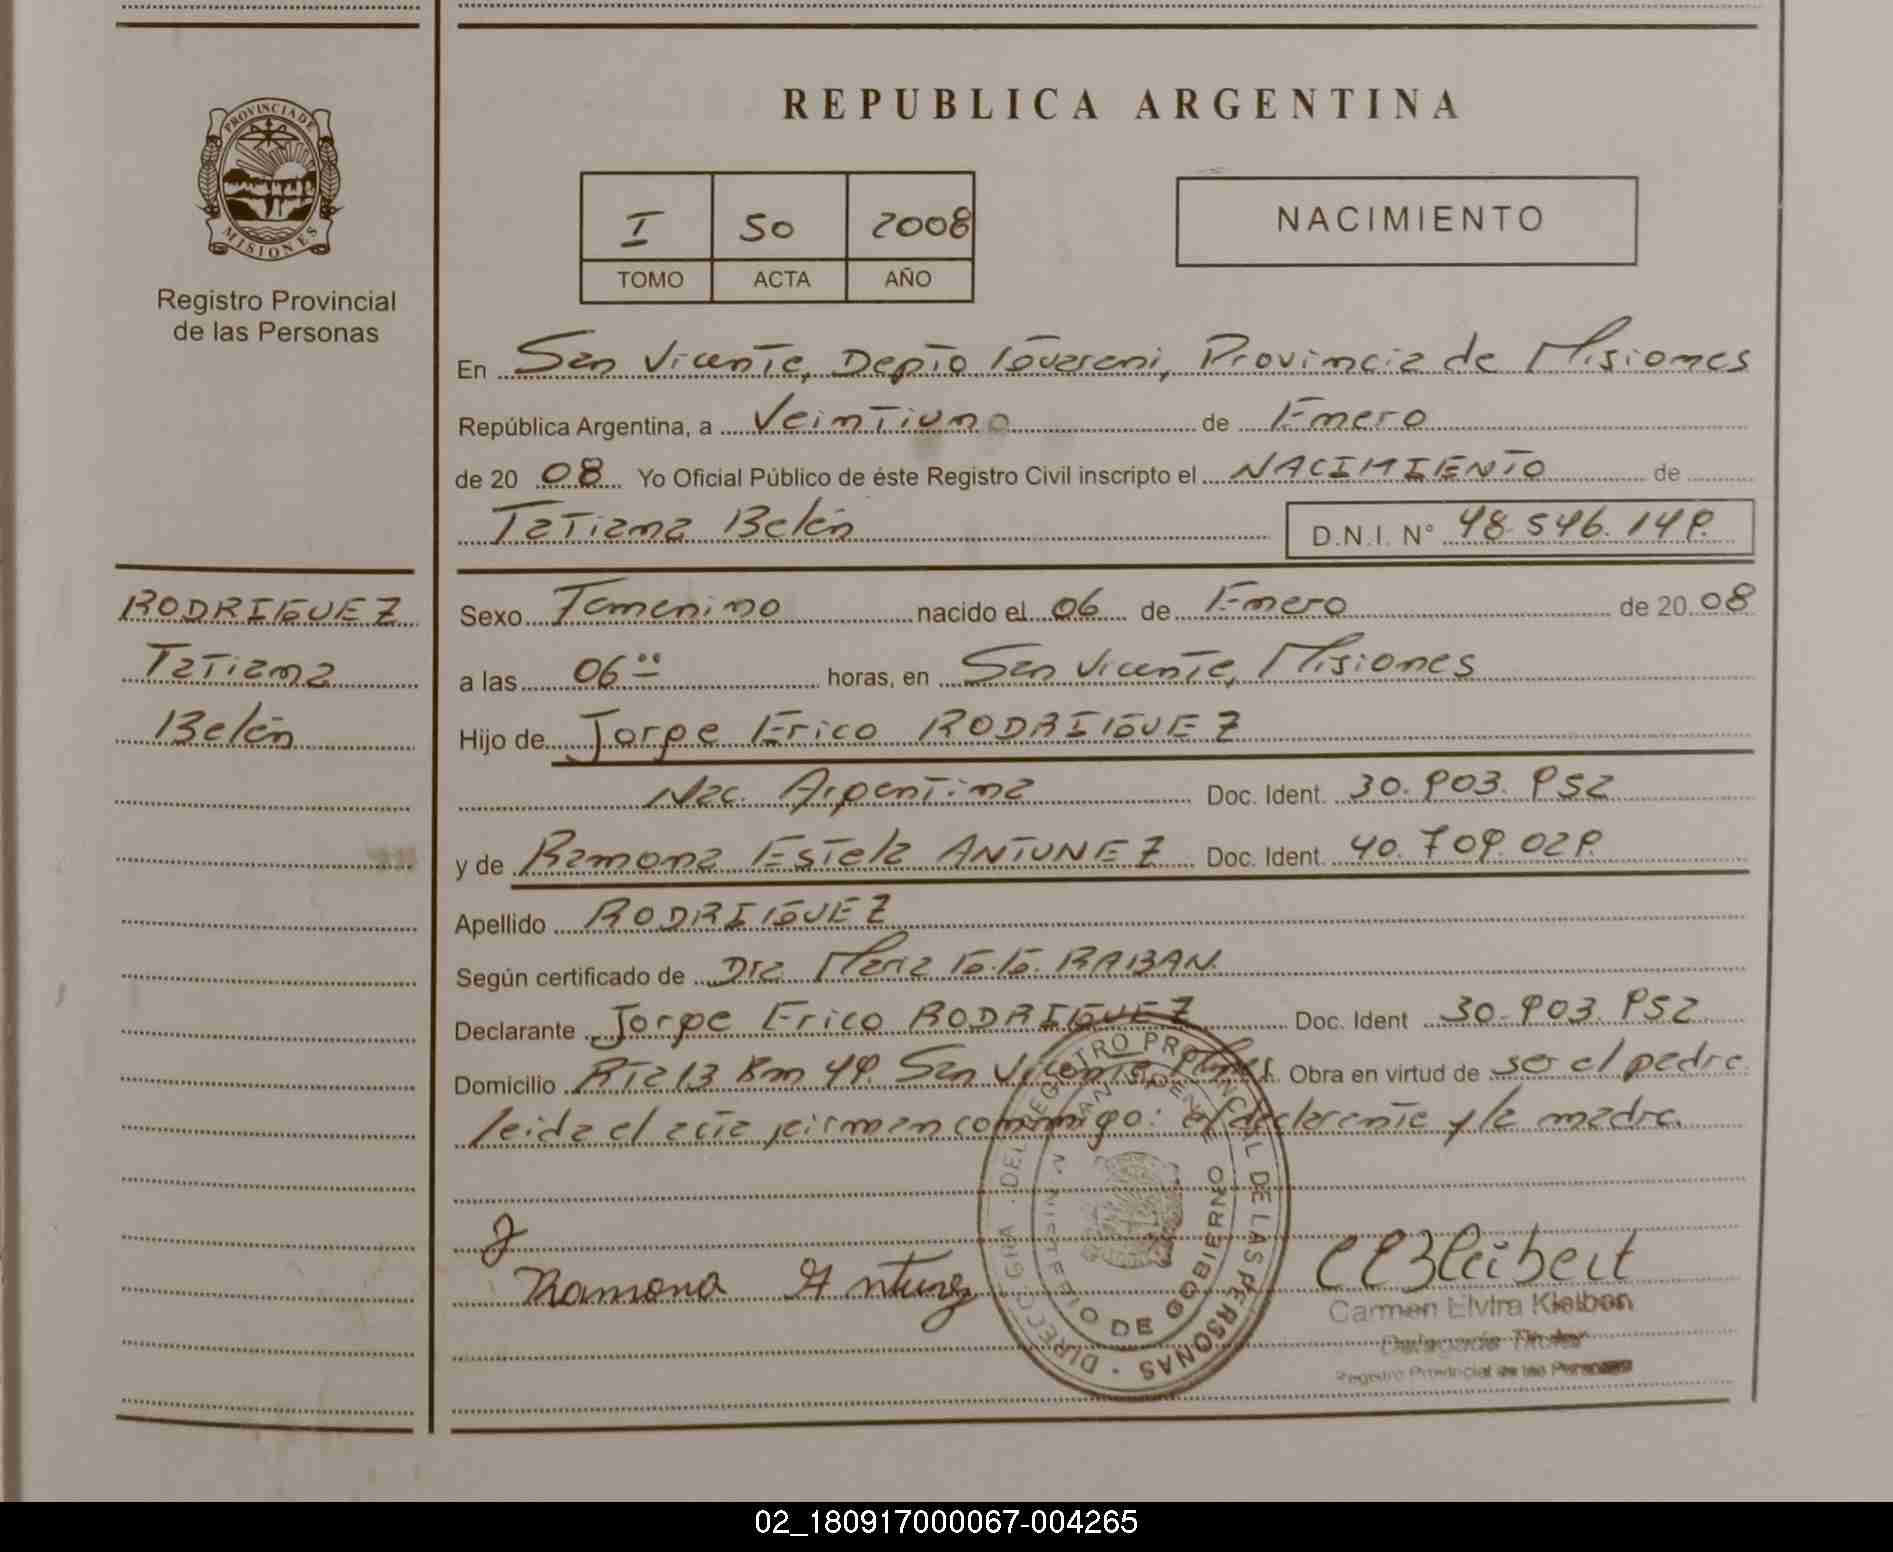 REPUBLICA ARGENTINA
PROVINCIA DE
MISIONES
Registro Provincial
de las Personas
I 50 2008
TOMO ACTA AÑO
NACIMIENTO
En San Vicente, Depto Guarani, Provincia de Misiones
República Argentina, a Veintiuno de Enero
de 20 08 Yo Oficial Público de éste Registro Civil inscripto el NACIMIENTO de
Tatiana Belén D.N.I. N° 48.546.149.
RODRIGUEZ
Tatiana
Belén
Sexo Femenino nacido el 06 de Enero de 20 08
a las 06 00 horas, en San Vicente, Misiones
Hijo de Jorge Erico RODRIGUEZ
Nac. Argentina Doc. Ident. 30.903.952
y de Ramona Estela ANTUNEZ Doc. Ident. 40.709.029.
Apellido RODRIGUEZ
Según certificado de Dra. Maria G.G. RABAN.
Declarante Jorge Erico RODRIGUEZ Doc. Ident 30.903.952
Domicilio Rta 13 Km 49. San Vicente, Mnes. Obra en virtud de ser el padre.
leida el acta firman conmigo: el declarante y la madre.
DIRECC. GRAL. DEL REGISTRO PROVINCIAL DE LAS PERSONAS
MINISTERIO DE GOBIERNO
Ramona Antunez
Carmen Elvira Kleibert
Delegado Titular
Registro Provincial de las Personas
02_180917000067-004265